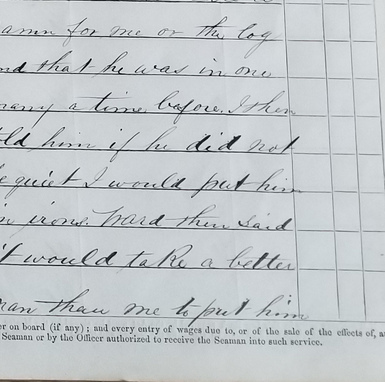 amn for me or the log
nd that he was in one
many a time before. I then
old him if he did not
be quiet I would put him
in irons. Ward then said
it would take a better
man than me to put him
er on board (if any) ; and every entry of wages due to, or of the sale of the effects of, a
Seaman or by the Officer authorized to receive the Seaman into such service.